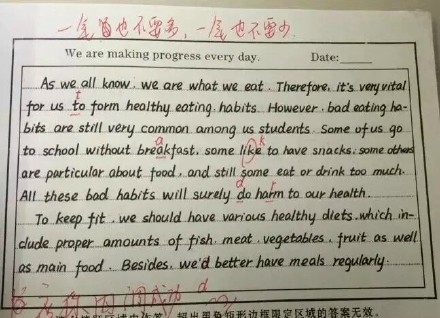 一笔画也不要多，一笔也不要少.
We are making progress every day. Date:
As we all know, we are what we eat. Therefore, it's very vital
for us to form healthy eating habits. However, bad eating ha-
bits are still very common among us students. Some of us go
to school without breakfast, some like to have snacks, some others
are particular about food, and still some eat or drink too much.
All these bad habits will surely do harm to our health.
To keep fit, we should have various healthy diets, which in-
clude proper amounts of fish, meat, vegetables, fruit as well
as main food. Besides, we'd better have meals regularly.
超出黑色矩形边框限定区域的答案无效。